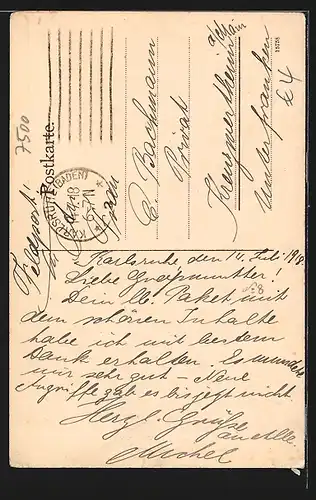 Postkarte.
Feldpost!
7500
KARLSRUHE (BADEN)
6-7 N
Frau
E. Bachmann
Privat
Kreuzwertheim a/Main
Unterfranken
£4
15758
Karlsruhe den 14. Juli 1918
Liebe Großmutter!
Dein lb. Paket mit
dem schönen Inhalte
habe ich mit bestem
Dank erhalten. Es mundete
mir sehr gut – Neue
Angriffe gab es bis jetzt nicht.
Herzl. Grüße
an Alle.
Michel